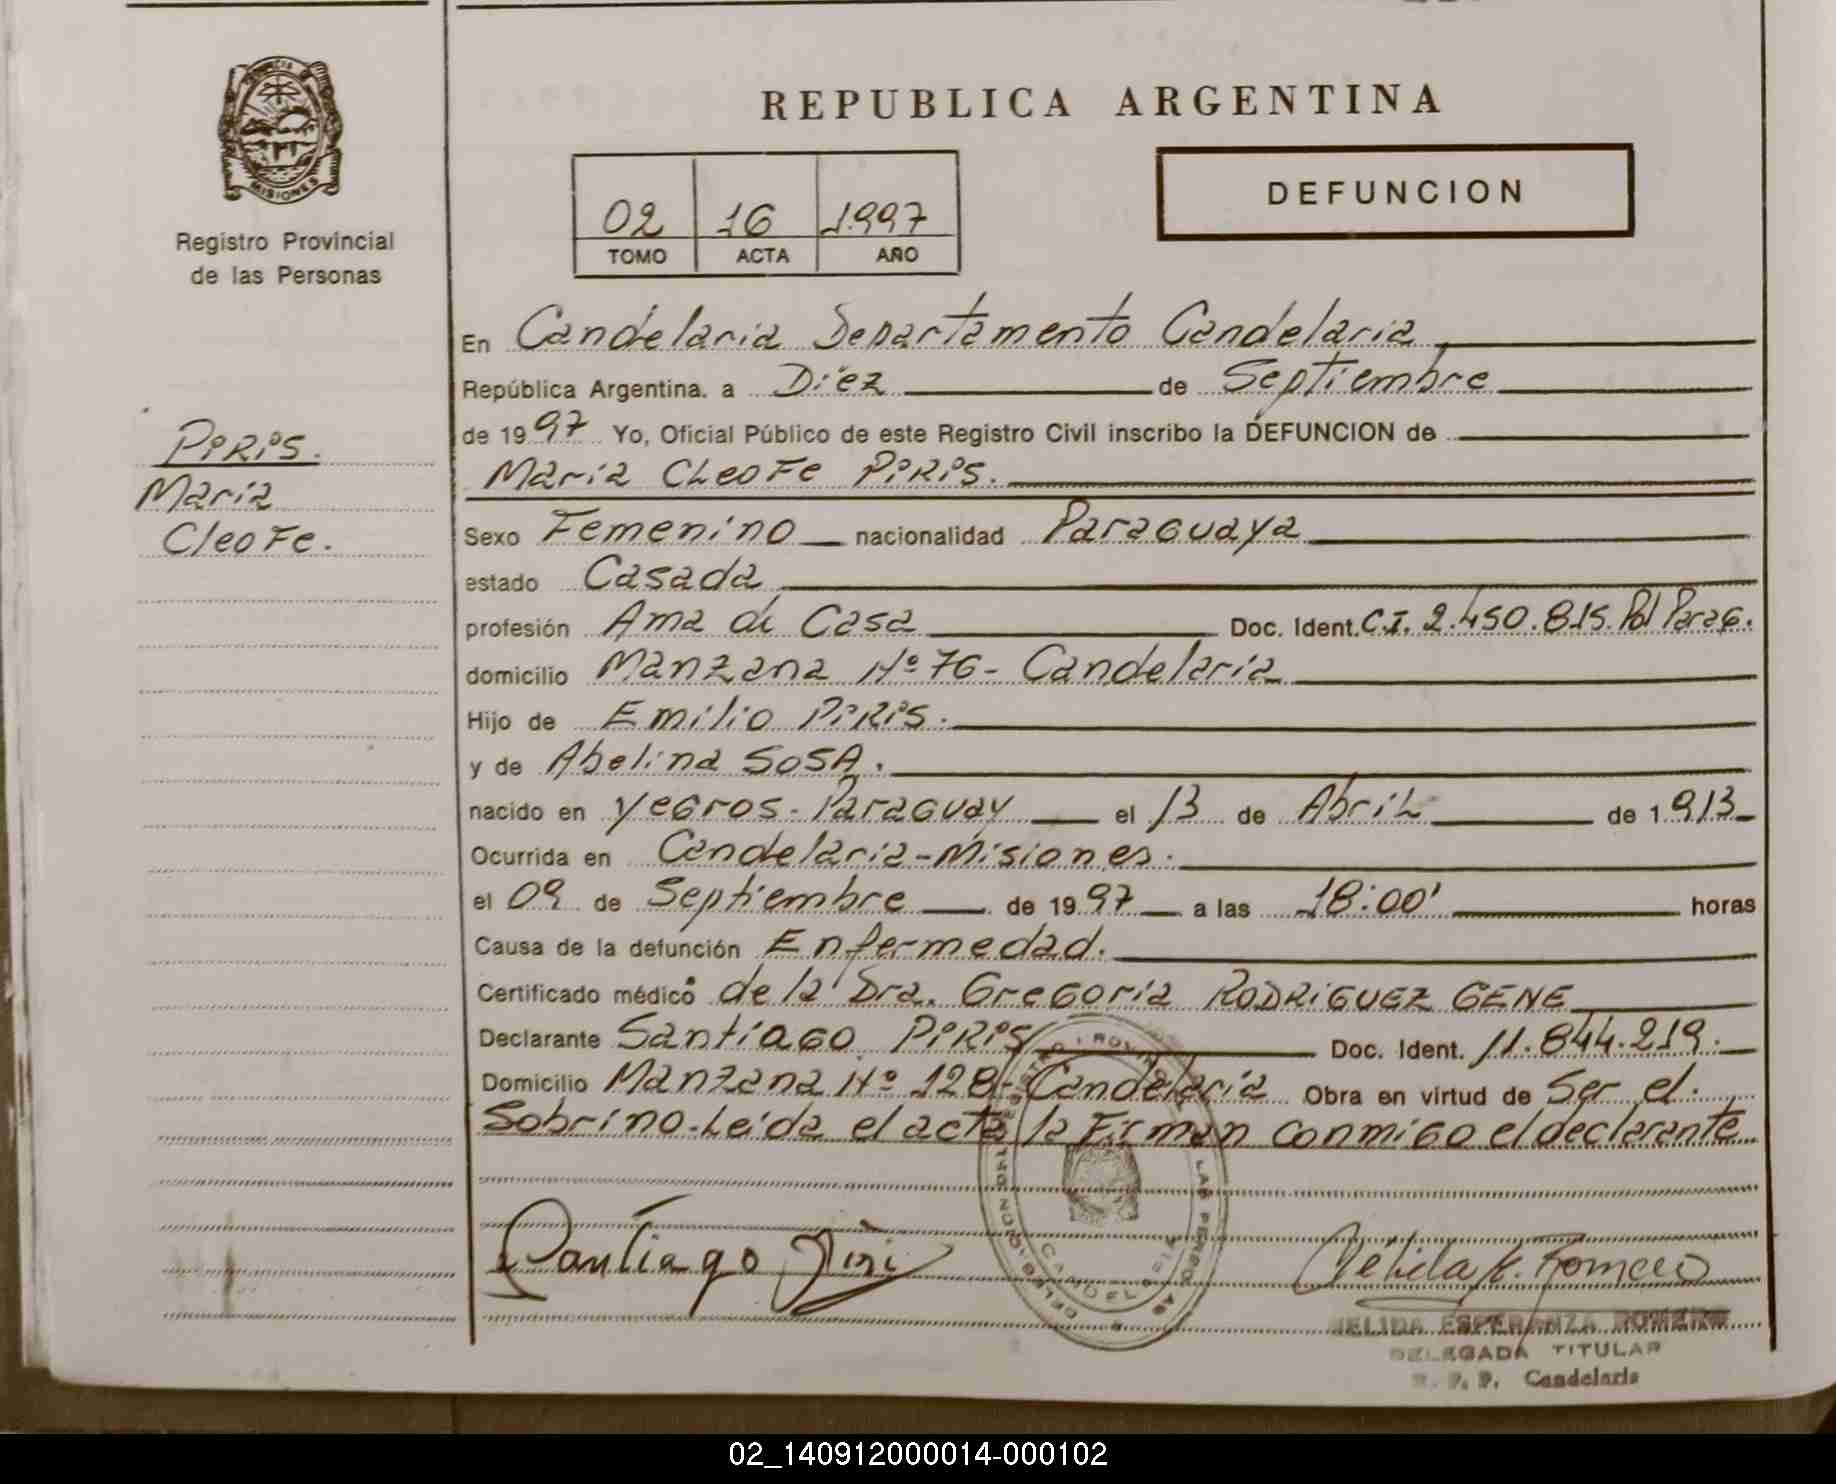 PROVINCIA
MISIONES
Registro Provincial
de las Personas
REPUBLICA ARGENTINA
DEFUNCION
02 16 1997
TOMO ACTA AÑO
En Candelaria Departamento Candelaria
República Argentina, a Diez de Septiembre
de 1997 Yo, Oficial Público de este Registro Civil inscribo la DEFUNCION de
María CLeoFe PiRis.
PiRis.
María
CleoFe.
Sexo Femenino nacionalidad Paraguaya
estado Casada
profesión Ama de Casa Doc. Ident. C.I. 2.450.815. Pol Parag.
domicilio Manzana Nº 76 - Candelaria
Hijo de Emilio PiRis.
y de Abelina SOSA.
nacido en Yegros - Paraguay el 13 de AbriL de 1913
Ocurrida en Candelaria - Misiones.
el 09 de Septiembre de 1997 a las 18:00' horas
Causa de la defunción Enfermedad.
Certificado médico de la Dra. Gregoria RODRiGUEZ GENE
Declarante Santiago PiRis Doc. Ident. 11.844.219.
Domicilio Manzana Nº 128 - Candelaria Obra en virtud de Ser el
Sobrino. Leida el acta la Firman conmigo el declarante
Santiago Piri
Nélida E. Romero
NELIDA ESPERANZA ROMERO
DELEGADA TITULAR
R. P. P. Candelaria
02_140912000014-000102